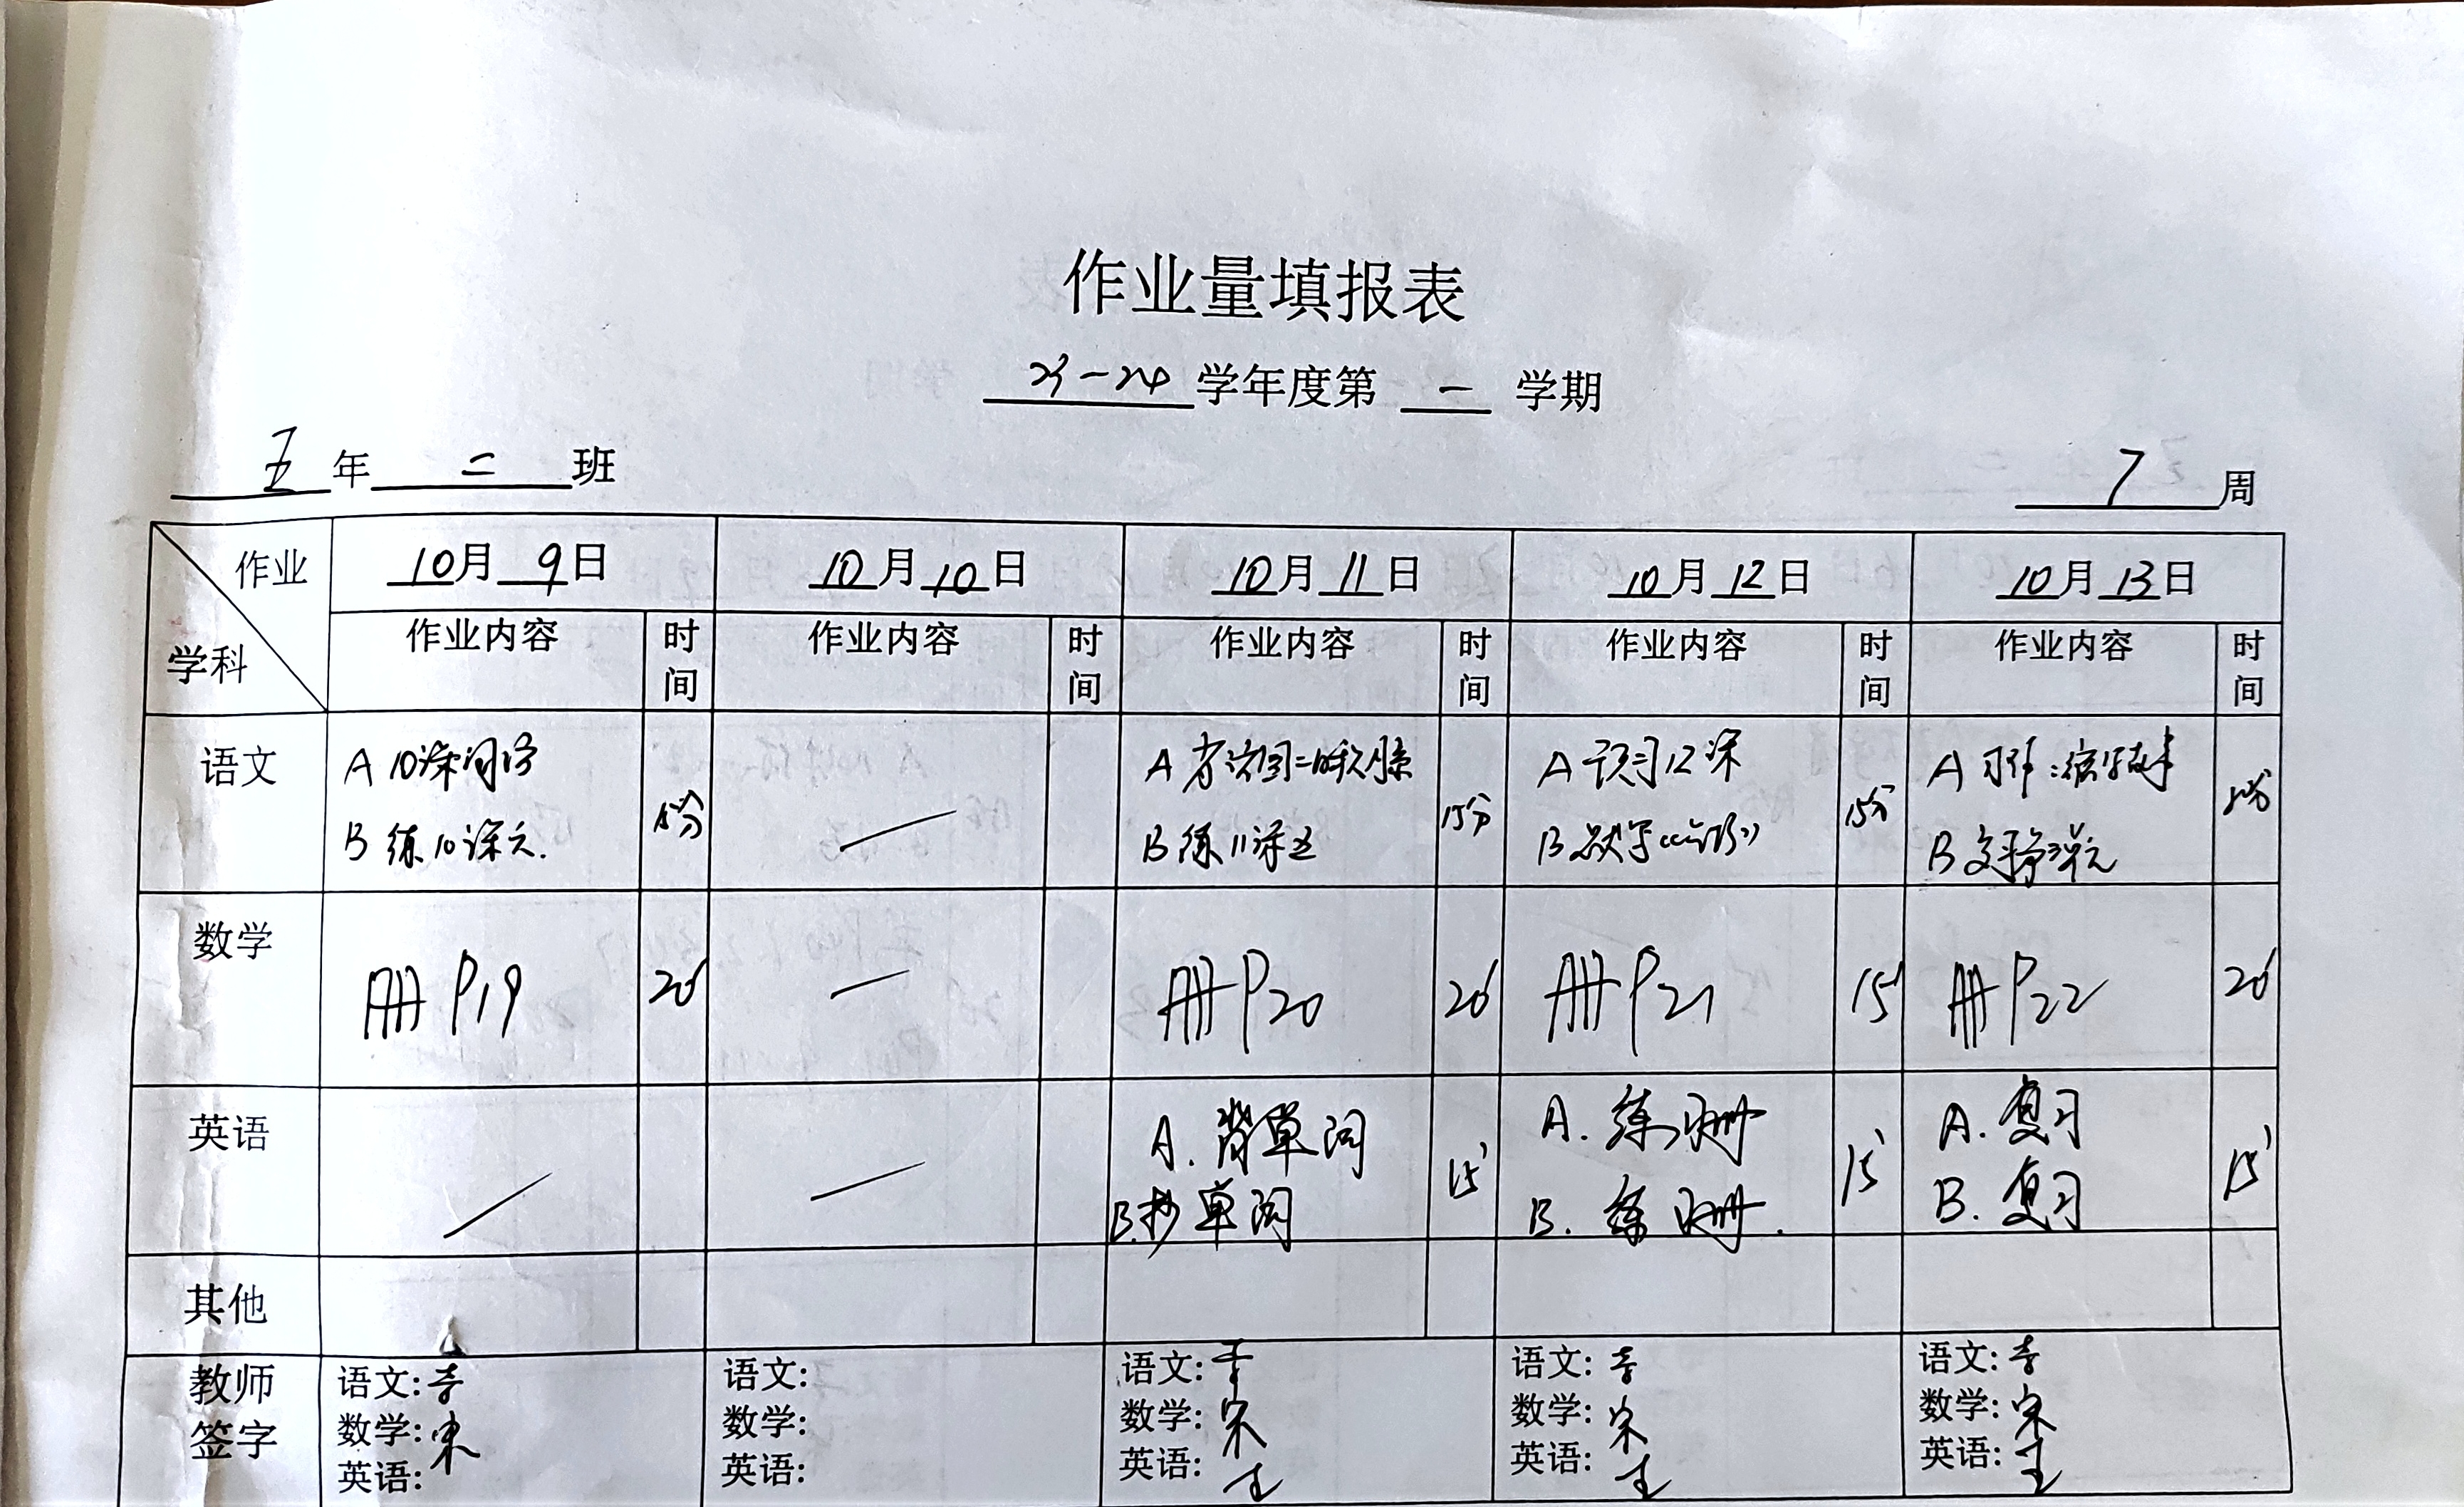 作业量填报表
23-24 学年度第 一 学期
五 年 二 班
7 周
作业
学科
10月 9日
10月10日
10月11日
10月12日
10月13日
作业内容 时间
作业内容 时间
作业内容 时间
作业内容 时间
作业内容 时间
语文
A 10课词语
B 练10课六.
15分
—
A
B 练11课五
15分
A 预习12课
B
15分
A 习作:缩写故事
B
数学
册P19
20'
—
册P20
20'
册P21
15'
册P22
20'
英语
—
—
A. 背单词
B.抄单词
15'
A. 练习册
B. 练习册.
15'
A. 复习
B. 复习
15'
其他
教师签字
语文:
数学:宋
英语:
语文:
数学:
英语:
语文:
数学:宋
英语:王
语文:
数学:宋
英语:王
语文:
数学:宋
英语:王